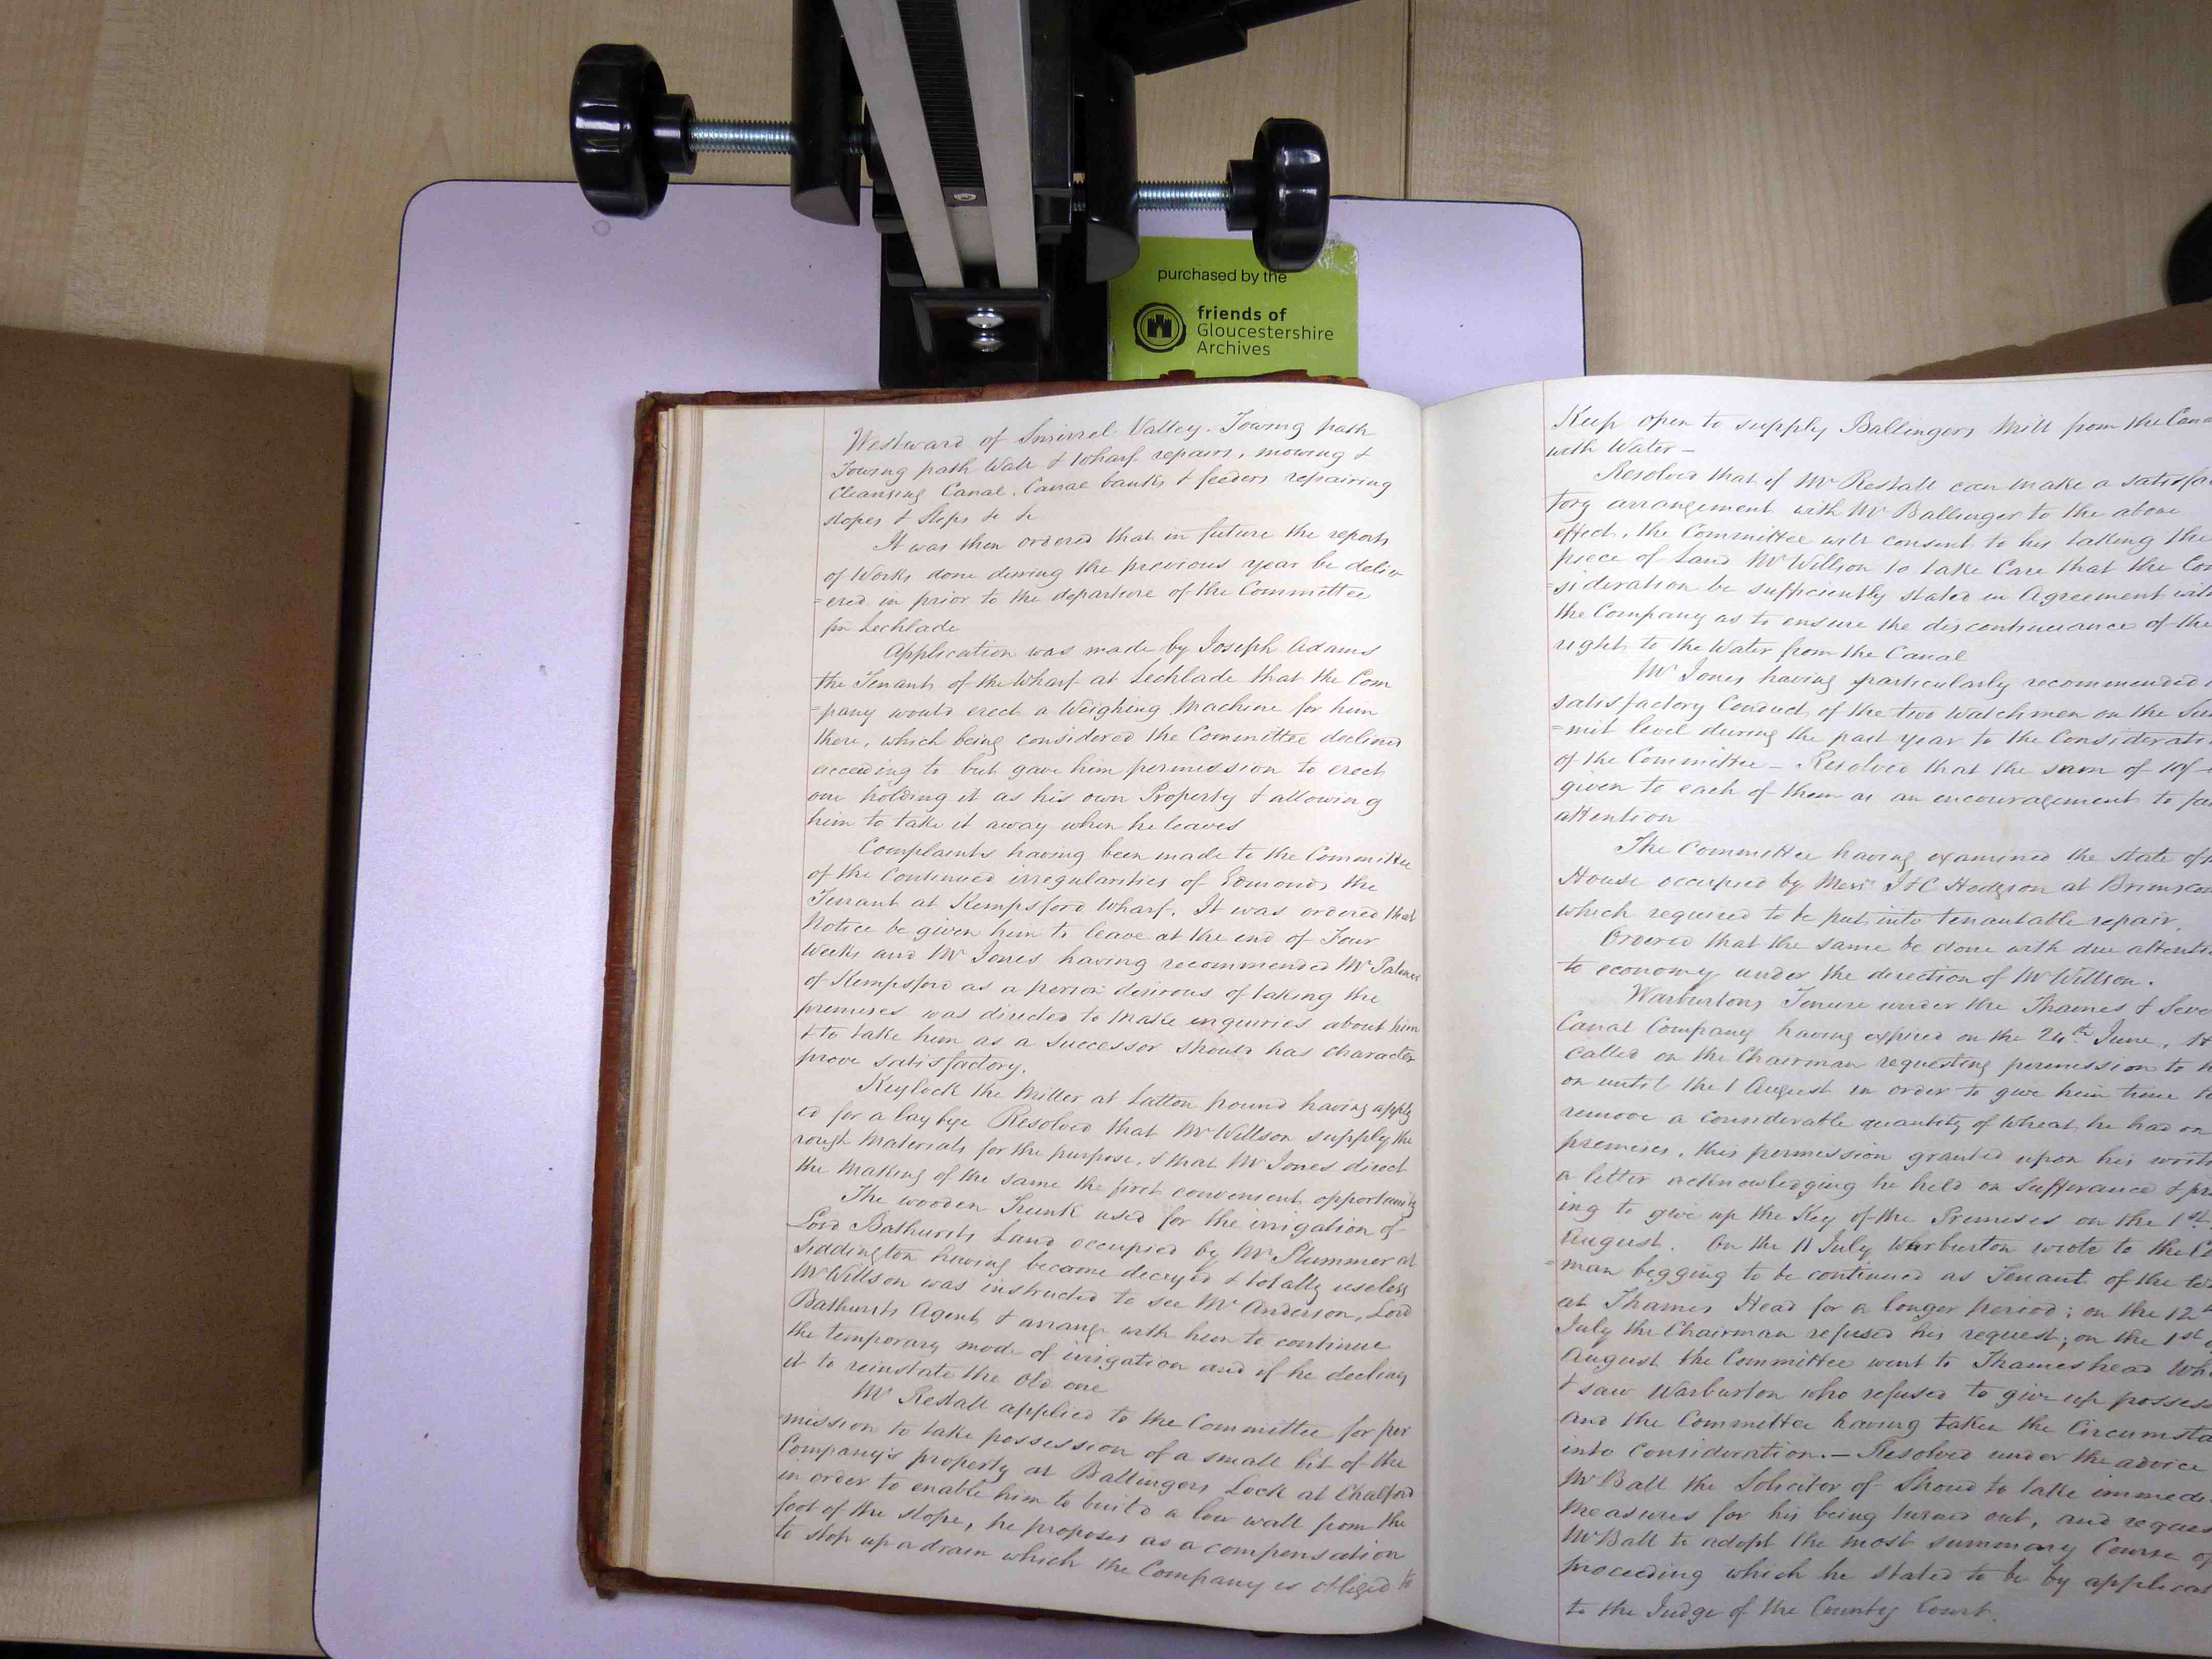 purchased by the
friends of
Gloucestershire
Archives
Westward of Smirrel Valley. Towing path
Towing path Wall & Wharf repairs, mowing &
Cleansing Canal, Canal banks & feeders repairing
slopes & Stops &c &c
It was then ordered that in future the reports
of Works done during the previous year be deliv
=ered in prior to the departure of the Committee
for Lechlade
Application was made by Joseph Adams
the Tenant of the Wharf at Lechlade that the Com
=pany would erect a Weighing Machine for him
there, which being considered the Committee declined
acceeding to but gave him permission to erect
one holding it as his own Property & allowing
him to take it away when he leaves
Complaints having been made to the Committee
of the Continued irregularities of Edmonds the
Tenant at Kempsford Wharf. It was ordered that
Notice be given him to leave at the end of Four
Weeks and Mr Jones having recommended Mr Palmer
of Kempsford as a person desirous of taking the
premises was directed to make enquiries about him
& to take him as a Successor should has character
prove satisfactory.
Keylock the Miller at Latton pound having apply
ed for a lay bye Resolved that Mr Willson supply the
rough Materials for the purpose, & that Mr Jones direct
the making of the same the first convenient opportunity
The wooden Trunk used for the irrigation of
Lord Bathursts Land occupied by Mr Plummer at
Siddington having become decayed & totally useless
Mr Willson was instructed to see Mr Anderson, Lord
Bathursts Agent & arrange with him to continue
the temporary mode of irrigation and if he declines
it to reinstate the old one
Mr Restall applied to the Committee for per
mission to take possession of a small bit of the
Company's property at Ballingers Lock at Chalford
in order to enable him to build a low wall from the
foot of the slope, he proposes as a compensation
to stop up a drain which the Company is obliged to
Keep open to supply Ballingers Mill from the Cana
with Water —
Resolved that if Mr Restall can make a satisfac
tory arrangement with Mr Ballinger to the above
effect, the Committee will consent to his taking the
piece of Land Mr Willson to take Care that the Con
=sideration be sufficiently stated in Agreement with
the Company as to ensure the discontinuance of the
right to the Water from the Canal
Mr Jones having particularly recommended
satisfactory Conduct of the two Watchmen on the Sum
=mit level during the past year to the Considerati
of the Committee — Resolved that the sum of 10/-
given to each of them as an encouragement to
attention
The Committee having examined the state of
House occupied by Messrs J & C Hodgson at Brimscom
which required to be put into tenantable repair,
Ordered that the same be done with due attenti
to economy under the direction of Mr Willson.
Warburtons Tenure under the Thames & Seve
Canal Company having expired on the 24th June,
called on the Chairman requesting permission to
on until the 1 August in order to give him time to
remove a considerable quantity of Wheat he had on
premises, this permission granted upon his writ
a letter acknowledging he held on Sufferance & pr
ing to give up the Key of the Premises on the 1st
August. On the 11 July Warburton wrote to the C
=man begging to be continued as Tenant of the
at Thames Head for a longer period; on the 12th
July the Chairman refused his request; on the 1st
August the Committee went to Thameshead Wh
& saw Warburton who refused to give up possess
and the Committee having taken the Circumsta
into Consideration. — Resolved under the advice
Mr Ball the Solicitor of Stroud to take immedi
Measures for his being turned out, and reques
Mr Ball to adopt the most summary Course of
proceeding which he stated to be by applicat
to the Judge of the County Court.